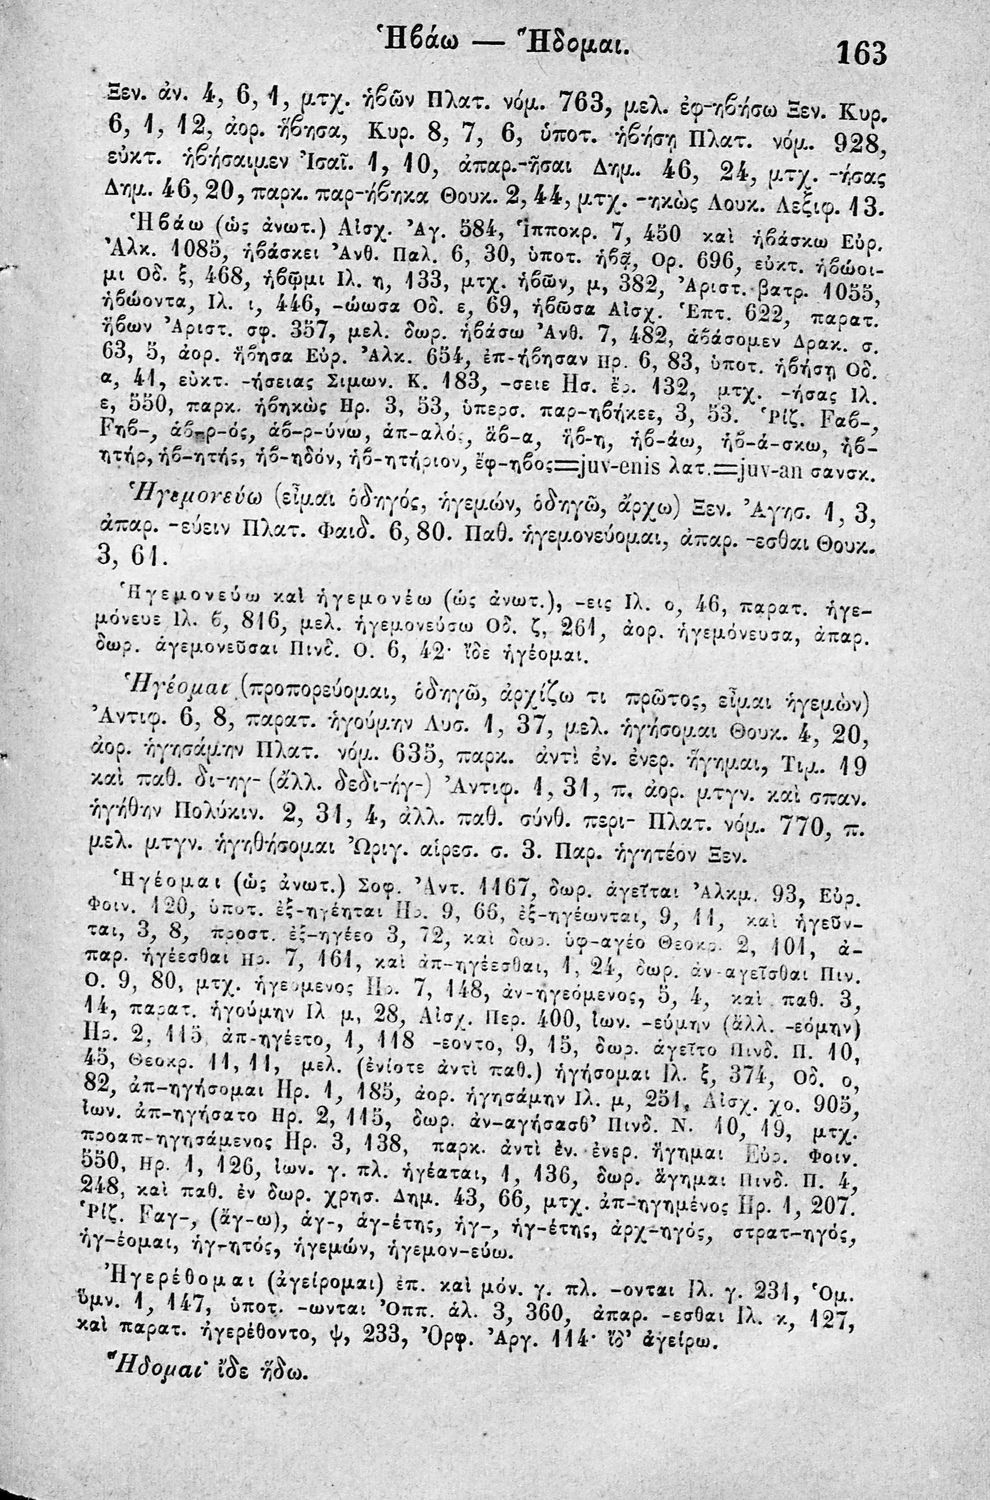 Ἡβάω — Ἥδομαι.
163
Ξεν. ἀν. 4, 6, 1, μτχ. ἡβῶν Πλατ. νόμ. 763, μελ. ἐφ-ηβήσω Ξεν. Κυρ.
6, 1, 12, ἀορ. ἥβησα, Κυρ. 8, 7, 6, ὑποτ. ἡβήσῃ Πλατ. νόμ. 928,
εὐκτ. ἡβήσαιμεν Ἰσαῖ. 1, 10, ἀπαρ.-ῆσαι Δημ. 46, 24, μτχ. -ήσας
Δημ. 46, 20, παρκ. παρ-ήβηκα Θουκ. 2, 44, μτχ. -ηκὼς Λουκ. Λεξιφ. 13.
Ἡβάω (ὡς ἀνωτ.) Αἰσχ. Ἀγ. 584, Ἱπποκρ. 7, 450 καὶ ἡβάσκω Εὐρ.
Ἀλκ. 1085, ἡβάσκει Ἀνθ. Παλ. 6, 30, ὑποτ. ἡβᾷ, Ορ. 696, εὐκτ. ἡβώοι-
μι Οδ. ξ, 468, ἡβῷμι Ιλ. η, 133, μτχ. ἡβῶν, μ, 382, Ἀριστ. βατρ. 1055,
ἡβώοντα, Ιλ. ι, 446, -ώωσα Οδ. ε, 69, ἡβῶσα Αἰσχ. Ἑπτ. 622, παρατ.
ἥβων Ἀριστ. σφ. 357, μελ. δωρ. ἡβάσω Ἀνθ. 7, 482, ἁβάσομεν Δρακ. σ.
63, 5, ἀορ. ἥβησα Εὐρ. Ἀλκ. 654, ἐπ-ήβησαν Ηρ. 6, 83, ὑποτ. ἡβήσῃ Οδ.
α, 41, εὐκτ. -ήσειας Σιμων. Κ. 183, -σειε Ησ. ἔρ. 132, μτχ. -ήσας Ιλ.
ε, 550, παρκ. ἡβηκὼς Ηρ. 3, 53, ὑπερσ. παρ-ηβήκεε, 3, 53. Ῥίζ. Ϝαβ-,
Ϝηβ-, ἁβ-ρ-ός, ἁβ-ρ-ύνω, ἁπ-αλός, ἅβ-α, ἥβ-η, ἡβ-άω, ἡβ-ά-σκω, ἡβ-
ητήρ, ἡβ-ητής, ἡβ-ηδόν, ἡβ-ητήριον, ἔφ-ηβος=juv-enis λατ.=juv-an σανσκ.
Ἡγεμονεύω (εἶμαι ὁδηγός, ἡγεμών, ὁδηγῶ, ἄρχω) Ξεν. Ἀγησ. 1, 3,
ἀπαρ. -εύειν Πλατ. Φαιδ. 6, 80. Παθ. ἡγεμονεύομαι, ἀπαρ. -εσθαι Θουκ.
3, 61.
Ἡγεμονεύω καὶ ἡγεμονέω (ὡς ἀνωτ.), -εις Ιλ. ο, 46, παρατ. ἡγε-
μόνευε Ιλ. β, 816, μελ. ἡγεμονεύσω Οδ. ζ, 261, ἀορ. ἡγεμόνευσα, ἀπαρ.
δωρ. ἁγεμονεῦσαι Πινδ. Ο. 6, 42· ἴδε ἡγέομαι.
Ἡγέομαι (προπορεύομαι, ὁδηγῶ, ἀρχίζω τι πρῶτος, εἶμαι ἡγεμὼν)
Ἀντιφ. 6, 8, παρατ. ἡγούμην Λυσ. 1, 37, μελ. ἡγήσομαι Θουκ. 4, 20,
ἀορ. ἡγησάμην Πλατ. νόμ. 635, παρκ. ἀντὶ ἐν. ἐνερ. ἥγημαι, Τιμ. 19
καὶ παθ. δι-ηγ- (ἄλλ. δεδι-ήγ-) Ἀντιφ. 1, 31, π. ἀορ. μτγν. καὶ σπαν.
ἡγήθην Πολύκιν. 2, 31, 4, ἀλλ. παθ. σύνθ. περι- Πλατ. νόμ. 770, π.
μελ. μτγν. ἡγηθήσομαι Ὠριγ. αἱρεσ. σ. 3. Παρ. ἡγητέον Ξεν.
Ἡγέομαι (ὡς ἀνωτ.) Σοφ. Ἀντ. 1167, δωρ. ἁγεῖται Ἀλκμ. 93, Εὐρ.
Φοιν. 120, ὑποτ. ἐξ-ηγέηται Ηρ. 9, 66, ἐξ-ηγέωνται, 9, 11, καὶ ἡγεῦν-
ται, 3, 8, προστ. ἐξ-ηγέεο 3, 72, καὶ δωρ. ὑφ-αγέο Θεοκρ. 2, 101, ἀ-
παρ. ἡγέεσθαι Ηρ. 7, 161, καὶ ἀπ-ηγέεσθαι, 1, 24, δωρ. ἀν-αγεῖσθαι Πιν.
Ο. 9, 80, μτχ. ἡγεόμενος Ηρ. 7, 148, ἀν-ηγεόμενος, 5, 4, καὶ παθ. 3,
14, παρατ. ἡγούμην Ιλ μ, 28, Αἰσχ. Περ. 400, ἰων. -εύμην (ἄλλ. -εόμην)
Ηρ. 2, 115, ἀπ-ηγέετο, 1, 118 -εοντο, 9, 15, δωρ. ἁγεῖτο Πινδ. Π. 10,
45, Θεοκρ. 11, 11, μελ. (ἐνίοτε ἀντὶ παθ.) ἡγήσομαι Ιλ. ξ, 374, Οδ. ο,
82, ἀπ-ηγήσομαι Ηρ. 1, 185, ἀορ. ἡγησάμην Ιλ. μ, 251, Αἰσχ. χο. 905,
ἰων. ἀπ-ηγήσατο Ηρ. 2, 115, δωρ. ἀν-αγήσασθ' Πινδ. Ν. 10, 19, μτχ.
προαπ-ηγησάμενος Ηρ. 3, 138, παρκ. ἀντὶ ἐν. ἐνερ. ἥγημαι Εὐρ. Φοιν.
550, Ηρ. 1, 126, ἰων. γ. πλ. ἡγέαται, 1, 136, δωρ. ἅγημαι Πινδ. Π. 4,
248, καὶ παθ. ἐν δωρ. χρησ. Δημ. 43, 66, μτχ. ἀπ-ηγημένος Ηρ. 1, 207.
Ῥίζ. Ϝαγ-, (ἄγ-ω), ἁγ-, ἁγ-έτης, ἡγ-, ἡγ-έτης, ἀρχ-ηγός, στρατ-ηγός,
ἡγ-έομαι, ἡγ-ητός, ἡγεμών, ἡγεμον-εύω.
Ἠγερέθομαι (ἀγείρομαι) ἐπ. καὶ μόν. γ. πλ. -ονται Ιλ. γ. 231, Ὁμ.
ὕμν. 1, 147, ὑποτ. -ωνται Ὀππ. ἁλ. 3, 360, ἀπαρ. -εσθαι Ιλ. κ, 127,
καὶ παρατ. ἠγερέθοντο, ψ, 233, Ὀρφ. Ἀργ. 114· ἴδ' ἀγείρω.
Ἥδομαι· ἴδε ἥδω.